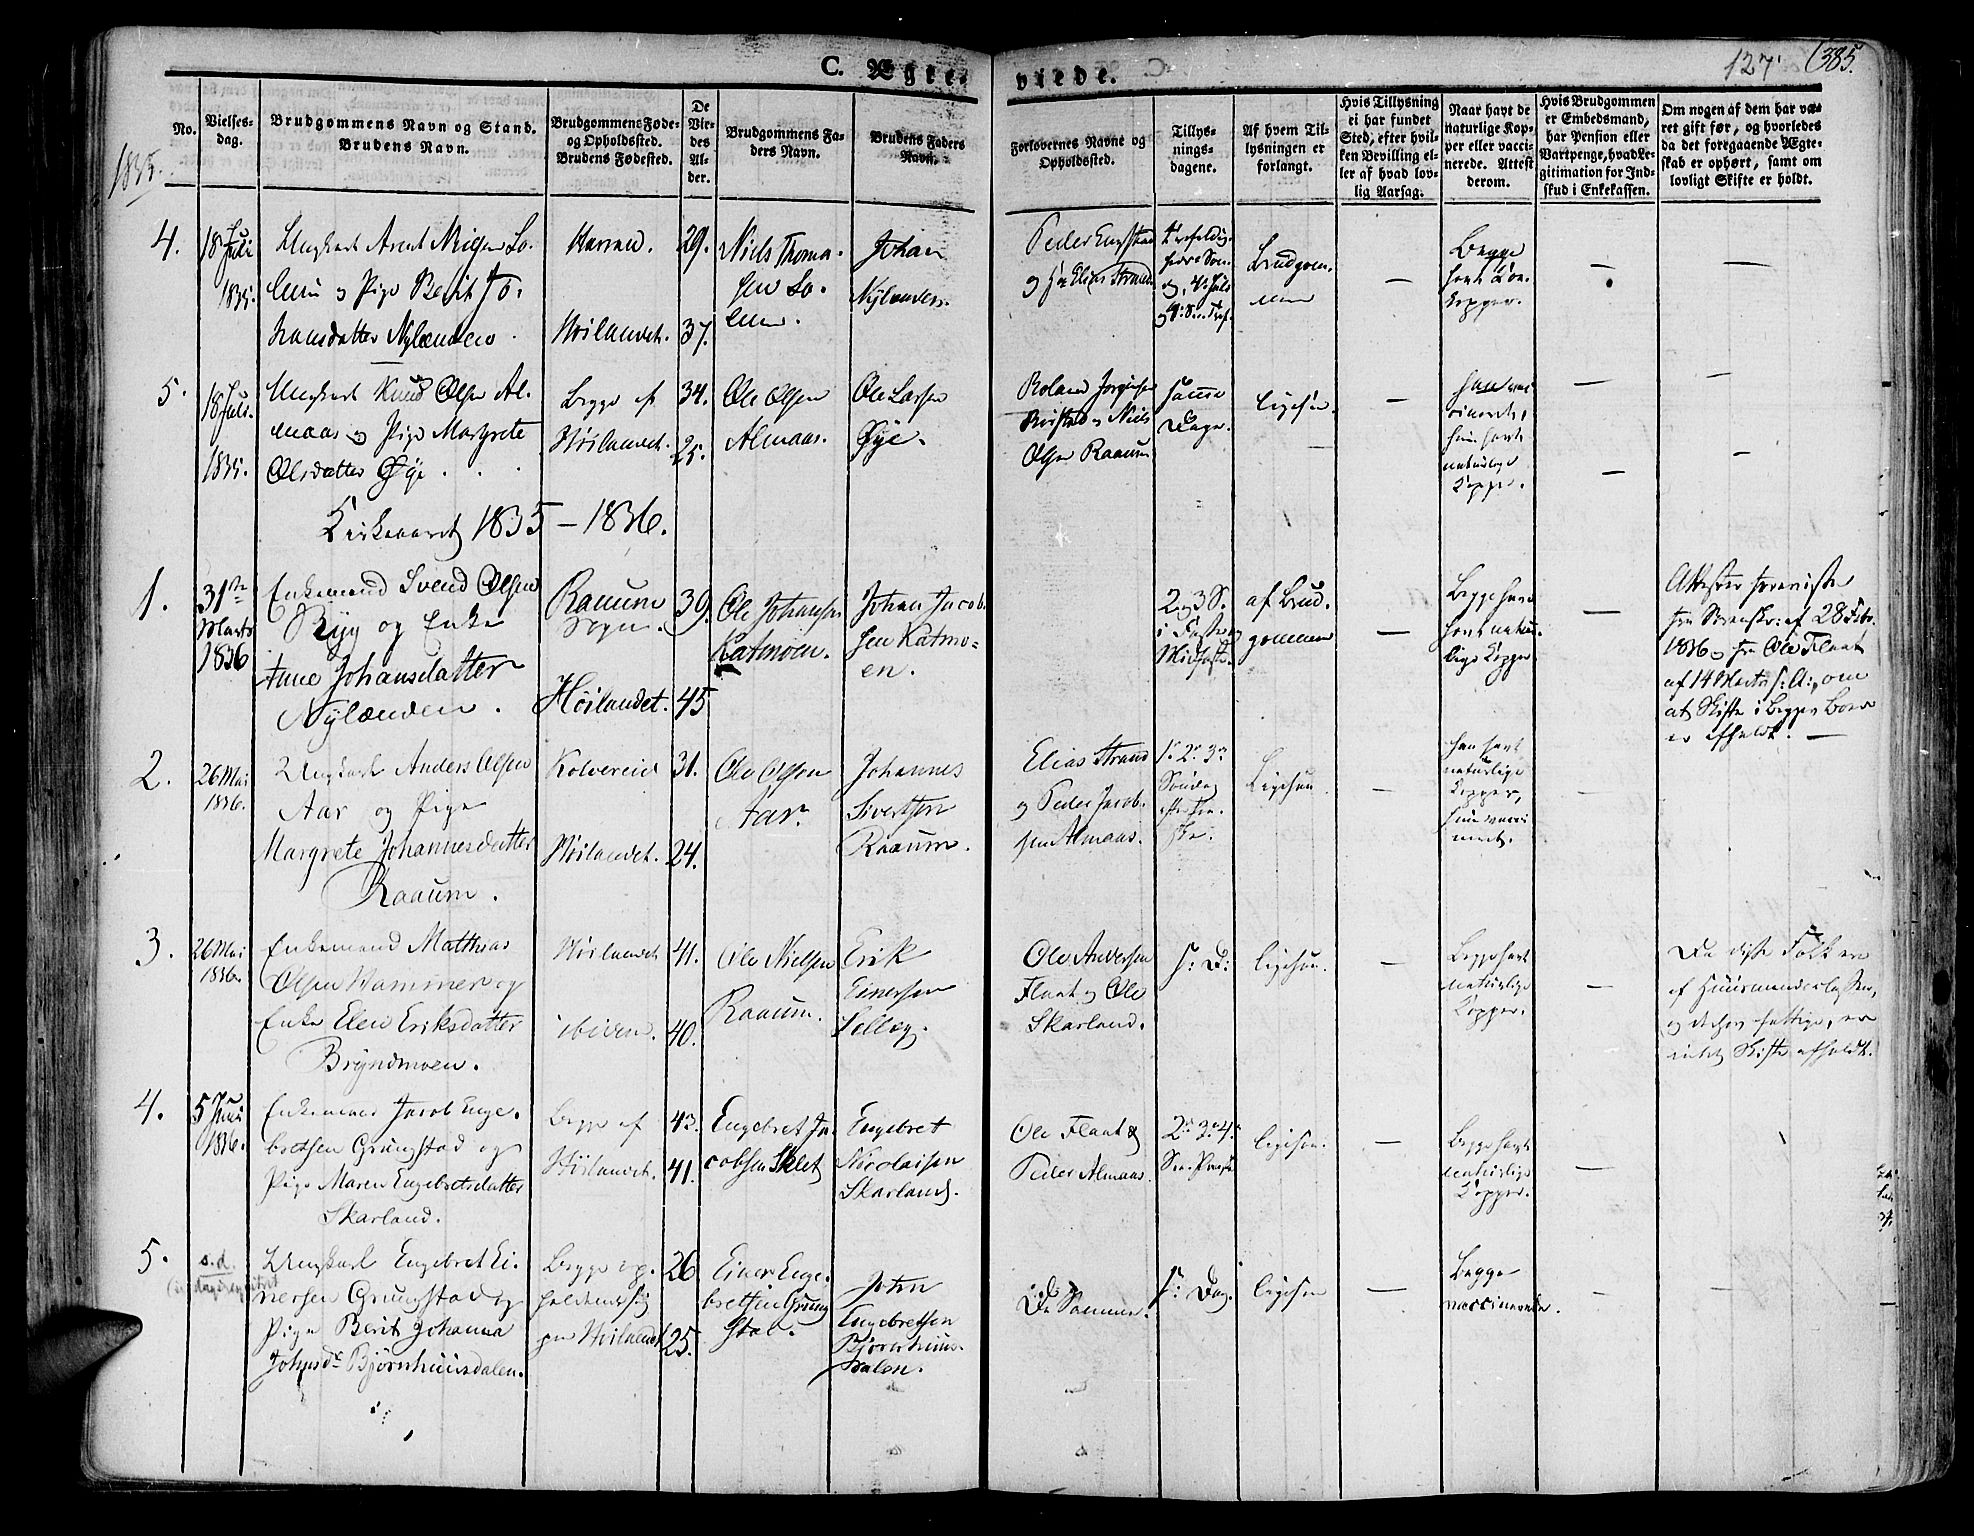 C. Ægte-
viede.
127.
385.
1835.
No.
Vielses-
dag.
Brudgommens Navn og Stand.
Brudens Navn.
Brudgommens Føde-
og Opholdssted.
Brudens Fødested.
De
Vie-
des
Al-
der.
Brudgommens Fa-
ders Navn.
Brudens Faders
Navn.
Forlovernes Navne og
Opholdssted.
Tillys-
nings-
dagene.
Af hvem Til-
lysningen er
forlangt.
Hvis Tillysning
ei har fundet
Sted, efter hvil-
ken Bevilling el-
ler af hvad lov-
lig Aarsag.
Naar havt de
naturlige Kop-
per eller vacci-
nerede. Attest
derom.
Hvis Brudgommen
er Embedsmand,
har Pension eller
Vartpenge, hvad Le-
gitimation for Ind-
skud i Enkekassen.
Om nogen af dem har væ-
ret gift før, og hvorledes
da det foregaaende Ægte-
skab er ophørt, samt om
lovligt Skifte er holdt.
4.
18 Juli
1835.
Ungkarl Arent
og Pige Berit Jo-
hansdatter Nylænden
Høilandet.
29.
37.
Niels Thoma-
sen
Johan
Nylænden.
Peder Engstad
og Elias Strand
Brudgom-
men
—
Begge
havt
Kopper.
—
—
5.
18 Juli
1835.
Ungkarl Knud Olsen Al-
maas og Pige Margrete
Olsdatter Øye.
Begge af
Høilandet.
34.
25.
Ole Olsen
Almaas.
Ole Larsen
Øye.
Roland Jørgensen
og Niels
Olsen Raaum
samme
Dage.
ligesaa.
—
hun havt
naturlige
Kopper.
—
—
Kirkeaaret 1835 – 1836.
1.
31te
Marts
1836
Enkemand Svend Olsen
Ryg og Enke
Anne Johansdatter
Nylænden.
Raaum
Sogn.
Høilandet.
39.
45
Ole Johansen
Katmoen.
Johan Jacob-
sen Katmo-
en.
2 og 3 S.
i Faste og
Midfaste.
af Brud-
gommen
—
Begge have
havt natur-
lige Kopper
—
Attester foreviste
fra af 28 Febr.
1836 og fra Ole Flaat
af 14 Marts s: A:, om
at Skifte i begges Boer
er afholdt. —
2.
26 Mai
1836.
Ungkarl Anders Olsen
Aar og Pige
Margrete Johannesdatter
Raaum.
Kolvereid
Høilandet.
31.
24.
Ole Olsen
Aar
Johannes
Sivertsen
Raaum.
Elias Strand
og Peder Jacob-
sen Almaas.
1ste 2de 3die
Søndag
Ligesaa
—
han havt
naturlige
Kopper,
hun vacci-
neret.
—
3.
26 Mai
1836.
Enkemand Matthias
Olsen Hammer og
Enke Elen Eriksdatter
Bryndmoen.
Høilandet
ibidem.
41.
40.
Ole Nielsen
Raaum.
Erik
Einersen
Sellæg.
Ole Andersen
Flaat og Ole
Skarland.
s: D:
ligesaa.
—
Begge havt
naturlige
Kopper.
—
Da disse Folk er
af Huusmandsclassen,
og derhos fattige, er
intet Skifte afholdt.
4.
5 Juni
1836.
Enkemand Jacob Enge-
bretsen Grungstad og
Pige Maren Engebretsdatter
Skarland.
Begge af
Høilandet.
43.
41.
Engebret Ja-
cobsen Sklet
Engebret
Nicolaisen
Skarland.
Ole Flaat &
Peder Almaas.
2de 3die 4de
ligesaa.
—
Begge havt
naturlige
Kopper.
—
5.
s. d.
Ungkarl Engebret Ei-
nersen Grungstad og
Pige Berit Johanna
Johnsdr Bjørnhuusdalen.
Begge op-
holdende sig
paa Høilandet
26
25.
Einer Enge-
bretsen Grung-
stad.
John
Engebretsen
Bjørnhuus-
dalen.
De Samme.
s: Dag.
ligesaa
—
Begge
vaccinerede.
—
—